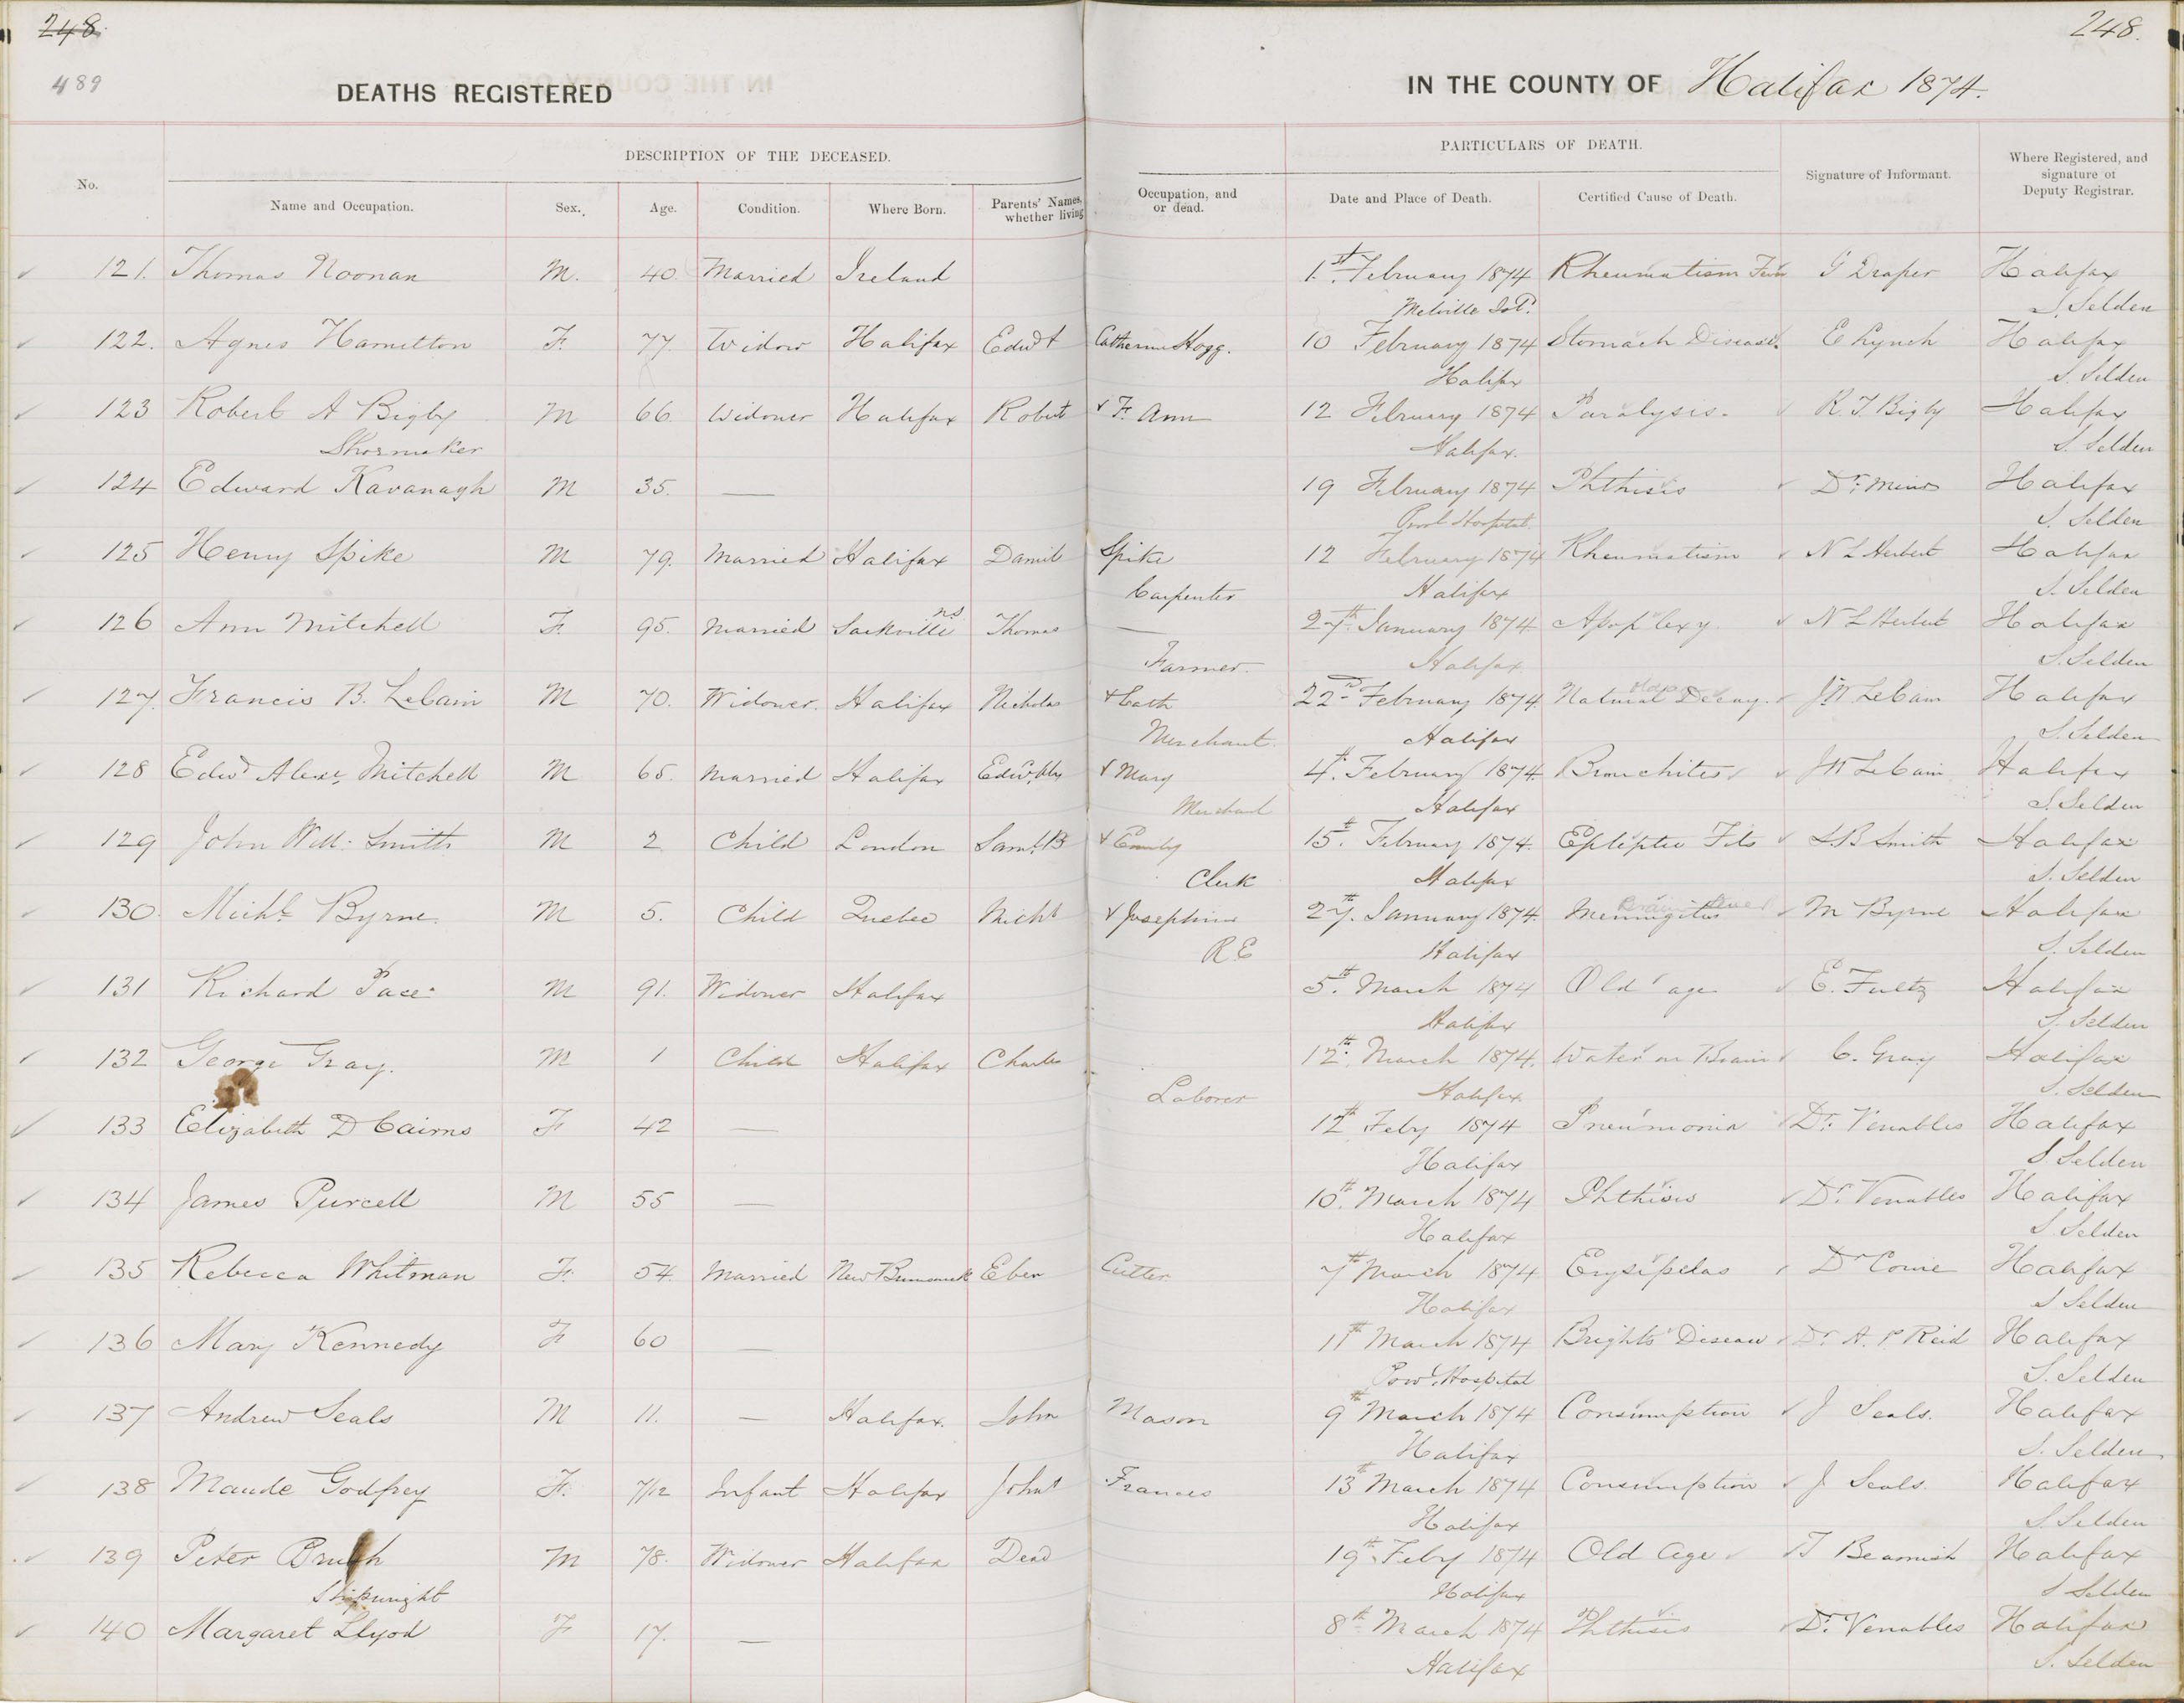 248.
248.
489
DEATHS REGISTERED
IN THE COUNTY OF Halifax 1874.
No.
DESCRIPTION OF THE DECEASED.
PARTICULARS OF DEATH.
Signature of Informant.
Where Registered, and signature of Deputy Registrar.
Name and Occupation. Sex. Age. Condition. Where Born. Parents' Names, whether living Occupation, and or dead. Date and Place of Death. Certified Cause of Death.
121. Thomas Noonan M. 40. Married Ireland 1st February 1874 Rheumatism G Draper Halifax
Melville Isd. S. Selden
122. Agnes Hamilton F. 77. Widow Halifax Edwd & Catherine Hogg. 10 February 1874 Stomach Disease. E Lynch Halifax
Halifax S. Selden
123 Robert A Bigby M 66. Widower Halifax Robert & F. Ann 12 February 1874 Paralysis. R. T. Bigby Halifax
Shoemaker Halifax. S. Selden
124 Edward Kavanagh M 35. — 19 February 1874 Phthisis Dr. Halifax
Hospital S. Selden
125 Henry Spike M 79. Married Halifax Daniel Spike 12 February 1874 Rheumatism N L Herbert Halifax
Carpenter Halifax S. Selden
126 Ann Mitchell F. 95. Married Sackville NS Thomas — 27th January 1874. Apoplexy. N L Herbert Halifax
Farmer. Halifax S. Selden
127. Francis B. LeCain M 70. Widower. Halifax Nicholas & Cath 22nd February 1874. Natural Decay. LeCain Halifax
Merchant. Halifax S. Selden
128 Edwd Alexr. Mitchell M 65. Married Halifax Edw. Alex & Mary 4th. February 1874. Bronchites LeCain Halifax
Merchant Halifax S. Selden
129 John Will. Smith M 2 Child London Saml. B & Emily 15th. February 1874. Epleptic Fits S. B Smith Halifax
Clerk Halifax S. Selden
130. Michl Byrne. M 5. Child Quebec Michl & Josephine 27th. January 1874. Meningitis M Byrne Halifax
R.E Halifax S. Selden
131 Richard Pace M 91. Widower Halifax 5th. March 1874 Old age E. Fultz Halifax
Halifax S. Selden
132 George Gray. M 1 Child Halifax Charles 12th. March 1874. Water on Brain C. Gray Halifax
Laborer Halifax S. Selden
133 Elizabeth D Cairns F 42 — 12th Feby 1874 Pneumonia Dr. Venables Halifax
Halifax S Selden
134 James Purcell M 55 — 10th. March 1874 Phthisis Dr. Venables Halifax
Halifax S Selden
135 Rebecca Whitman F. 54 Married New Brunswick Eben Cutter 7th March 1874 Erysipelas Dr Halifax
Halifax S Selden
136 Mary Kennedy F 60 — 11th March 1874 Brights Disease Dr. A. P Reid Halifax
Hospital S. Selden
137 Andrew Seals M 11. — Halifax. John Mason 9th March 1874 Consumption J Seals. Halifax
Halifax S. Selden
138 Maude Godfrey F. 7/12 Infant Halifax John & Frances 13th March 1874 Consumption J Seals. Halifax
Halifax S. Selden
139 Peter M 78. Widower Halifax Dead 19th. Feby 1874 Old Age T Beamish Halifax
Shipwright Halifax S Selden
140 Margaret Llyod F 17. — 8th March 1874 Phthisis Dr. Venables Halifax
Halifax S. Selden